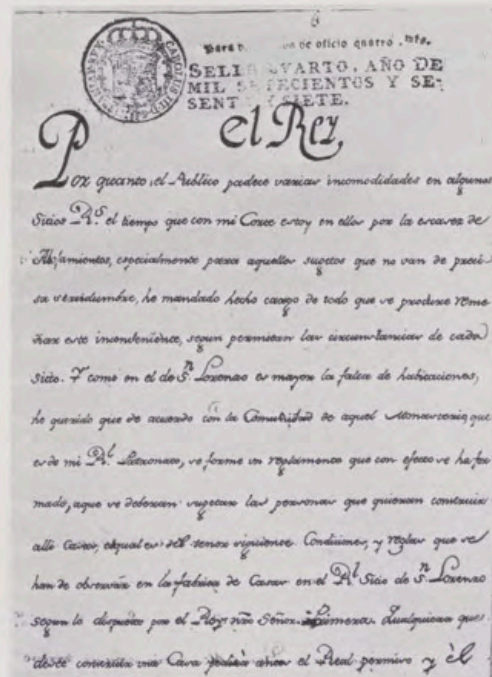 Para d de oficio quatro mrs.
SELLO QVARTO, AÑO DE
MIL SETECIENTOS Y SE-
SENTA Y SIETE.
el Rey
Por quanto, el Publico padece varias incomodidades en algunos
Sitios Rs. el tiempo que con mi Corte estoy en ellos por la escasez de
Alojamientos, especialmente para aquellos sugetos que no van de preci-
sa servidumbre, he mandado hecho cargo de todo que se procure reme-
diar este inconveniente, segun permitan las circunstancias de cada
Sitio. Y como en el de Sn. Lorenzo es mayor la falta de habitaciones,
he querido que de acuerdo con la Comunidad de aquel Monasterio, que
es de mi Rl. Patronato, se forme un reglamento que con efecto se ha for
mado, aque se deberan sugetar las personas que quieran construir
alli Casas, el qual es del tenor siguiente. Condiciones, y reglas que se
han de observar en la fabrica de Casas en el Rl. Sitio de Sn. Lorenzo
segun lo dispuesto por el Rey nro Señor. Primera. Qualquiera que
desee construir una Casa pedirá antes el Real permiso y él